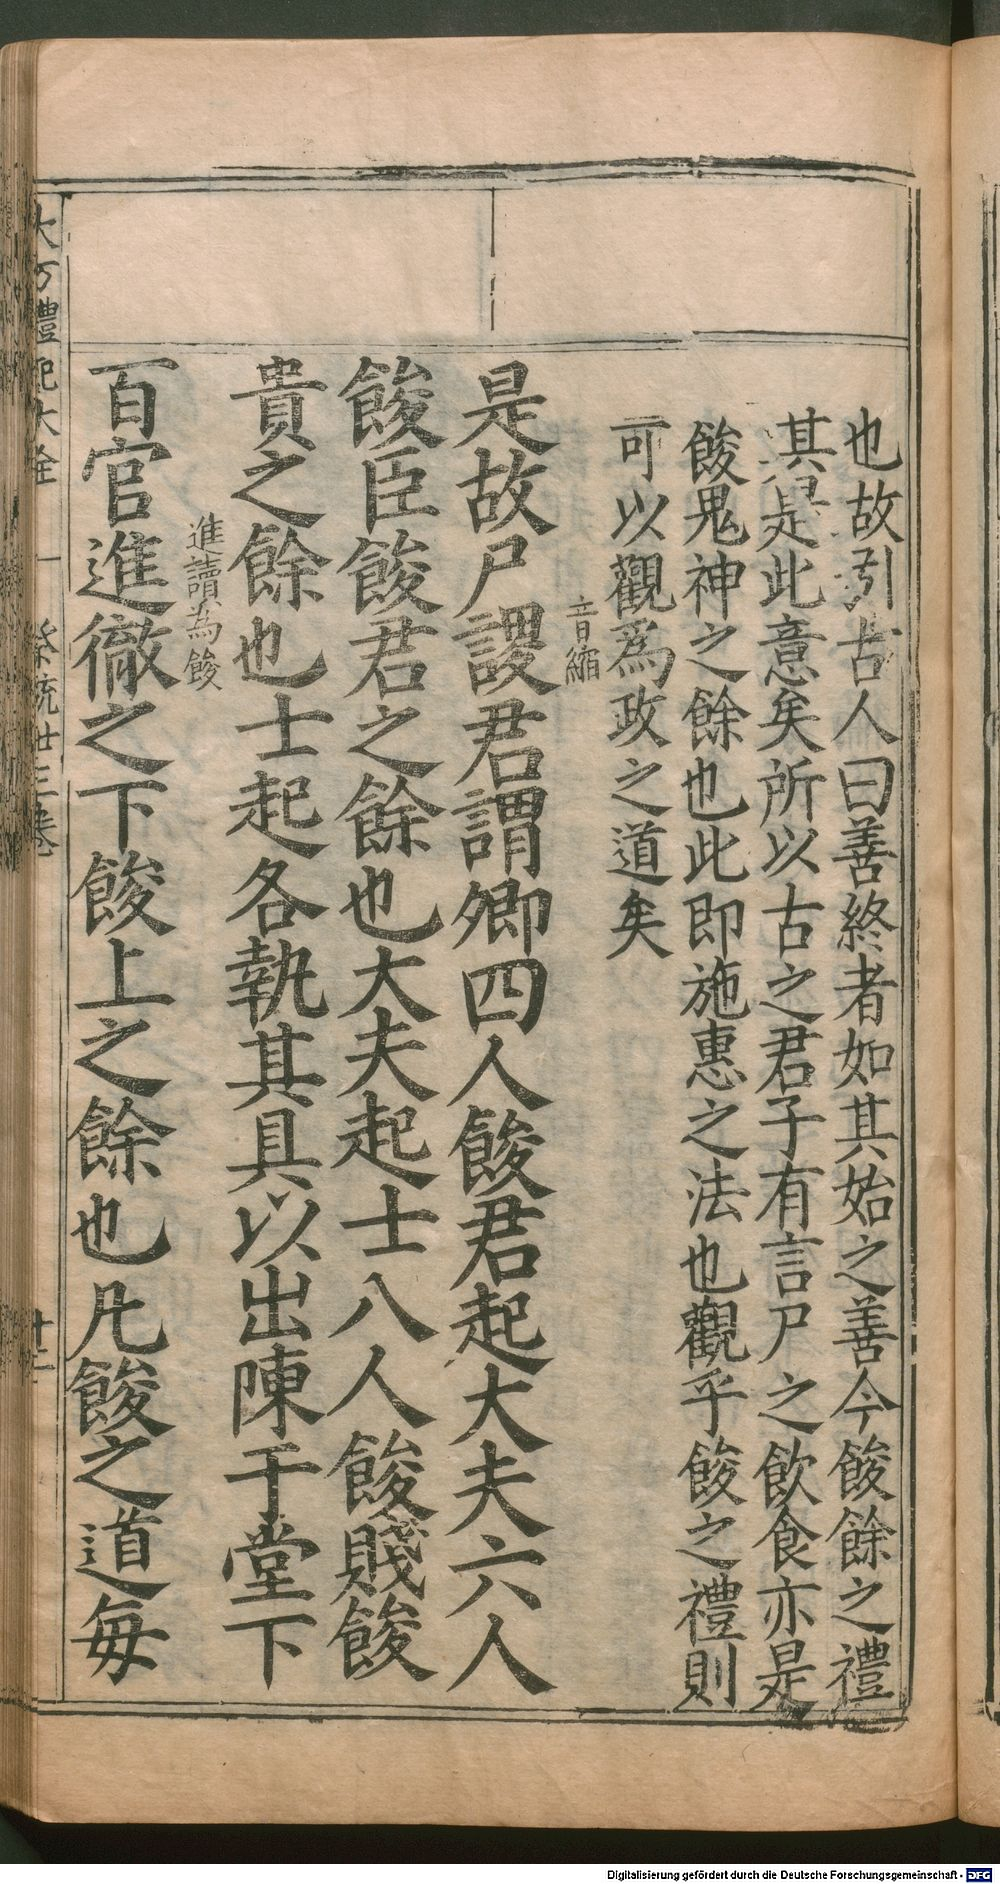 也故引古人曰善終者如其始之善今餕餘之禮
其是此意矣所以古之君子有言尸之飲食亦是
餕鬼神之餘也此即施惠之法也觀乎餕之禮則
可以觀為政之道矣
音縮
是故尸謖君謂卿四人餕君起大夫六人
餕臣餕君之餘也大夫起士八人餕賤餕
貴之餘也士起各執其具以出陳于堂下
進讀為餕
百官進徹之下餕上之餘也凡餕之道每
禮記大全
祭統廿三卷
十二
Digitalisierung gefördert durch die Deutsche Forschungsgemeinschaft - DFG